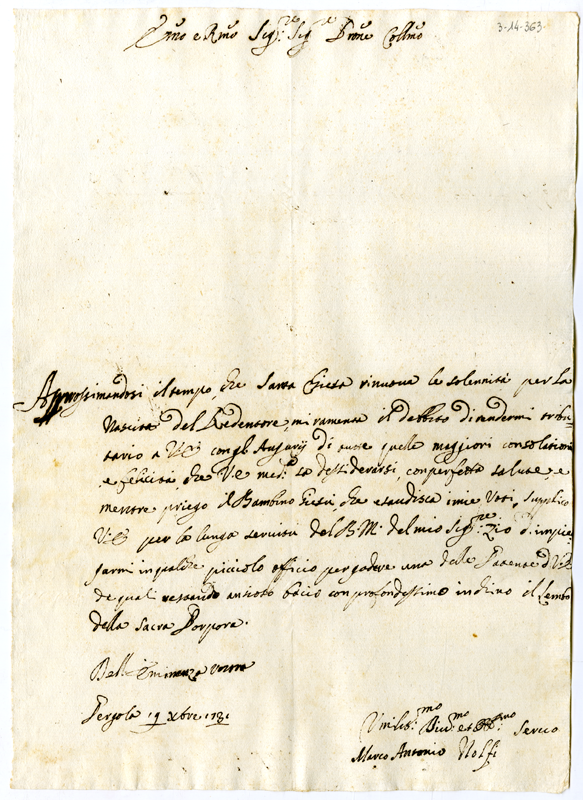 3-14-363.
Emo e Rmo Sig:re Sig:re Prone Collmo
Approssimandosi il tempo, che Santa Chiesa rinuova le solennità per la
Nascita del Redentore, mi ramenta il debbito di rendermi tribu-
tario a V.E. con gl'Augurij di tutte quelle maggiori consolationi
e felicità, che V.E. med.a sa dessiderarsi, con perfetta salute, e
mentre priego il Bambino Giesù, che esaudisca i miei Voti, supplico
V.E. per la lunga servitù del B.M. del mio Sig:re Zio d'impie-
garmi in qualche picciolo officio per godere una delle Patente d'V.E.
de quali restando ansioso bacio con profondissimo inchino il Lembo
della Sacra Porpora.
Dell'Eminenza vostra
Pergola 19 Xbre 1731
Umiliss:mo Div:mo et Obb:mo Servo
Marco Antonio Nolfi